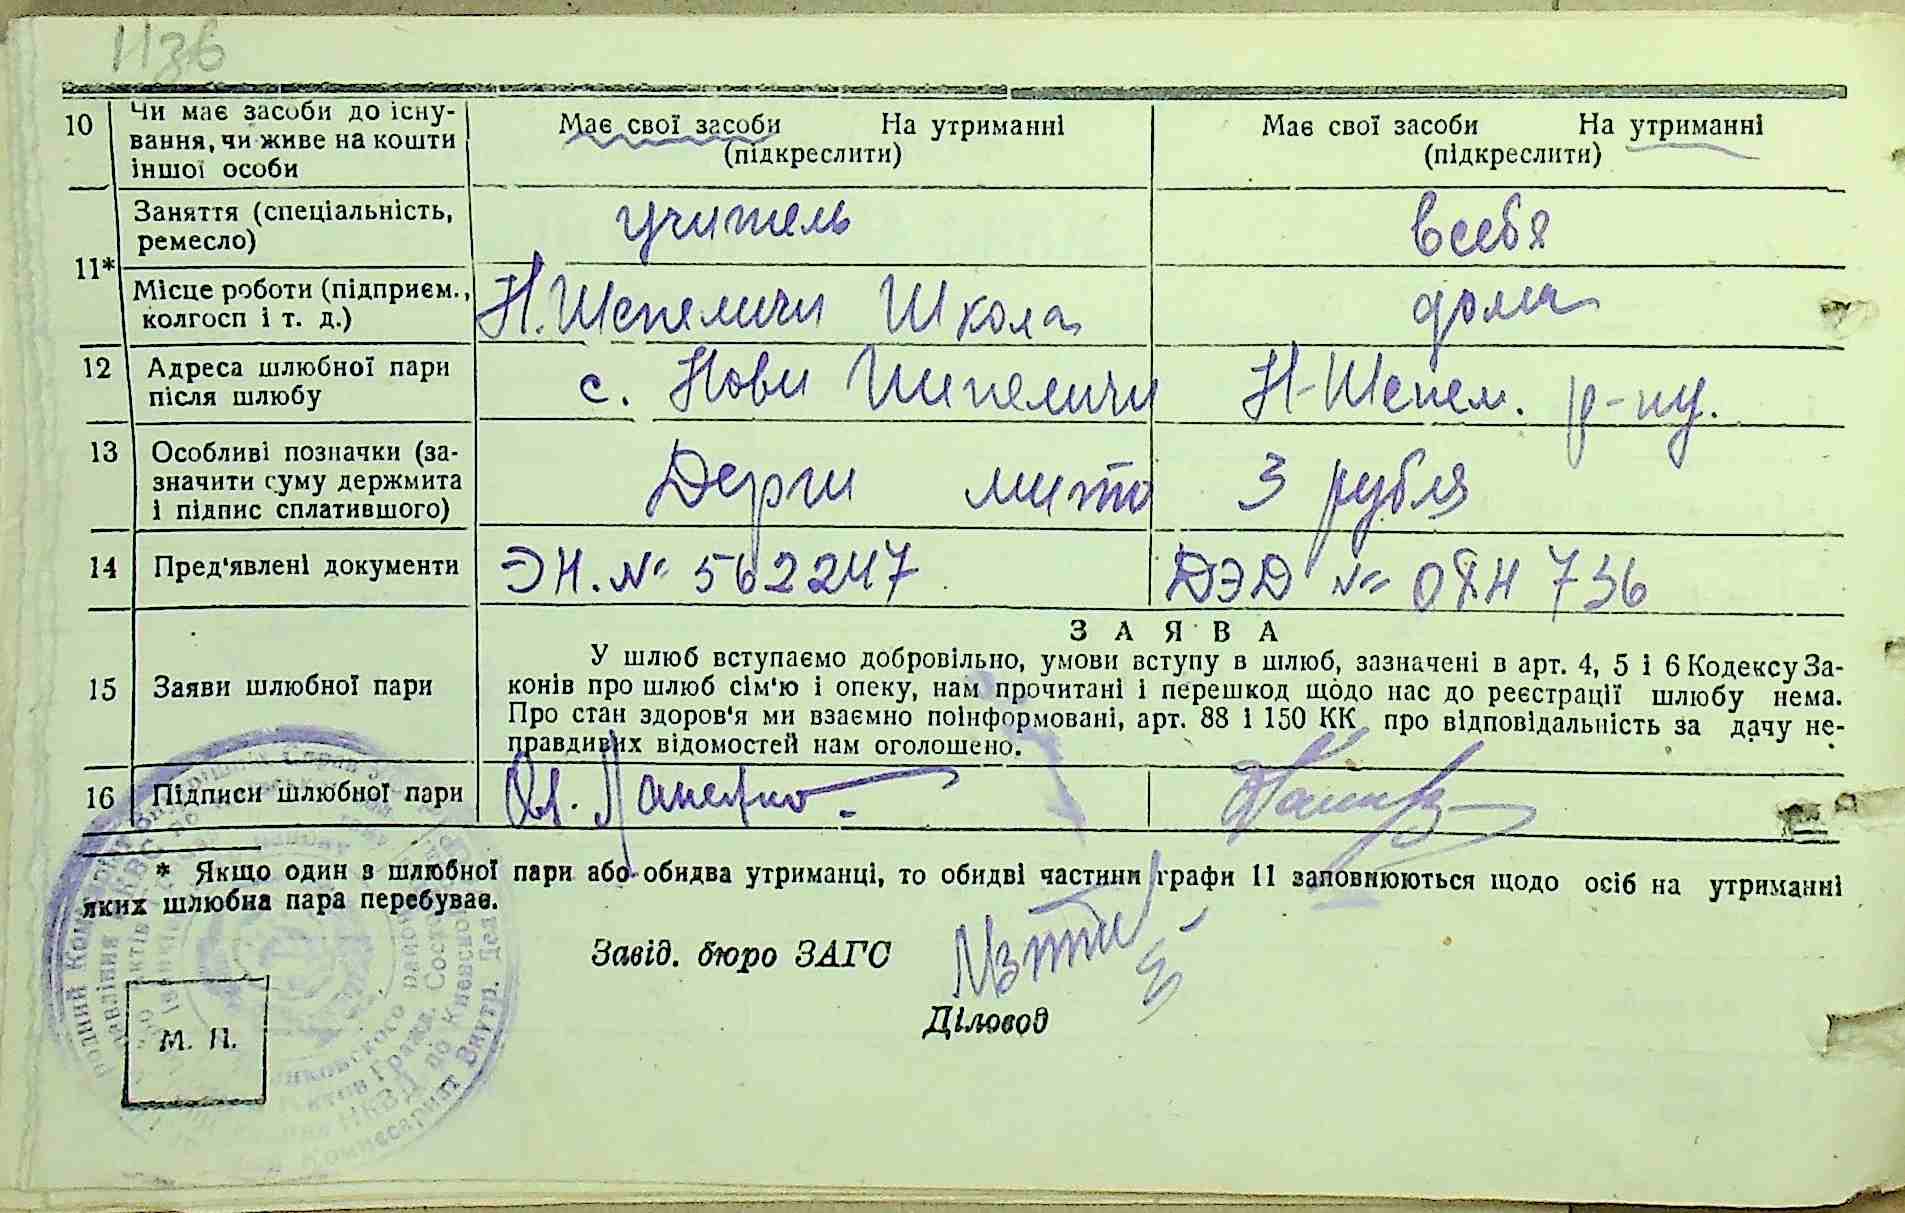 1136
10 Чи має засоби до існу-
вання, чи живе на кошти
іншої особи
Має свої засоби На утриманні
(підкреслити)
Має свої засоби На утриманні
(підкреслити)
11*
Заняття (спеціальність,
ремесло)
учитель
всебя
Місце роботи (підприєм.,
колгосп і т. д.)
Н. Шепеличи Школа
дома
12 Адреса шлюбної пари
після шлюбу
с. Нови Шипеличи Н-Шепел. р-ну.
13 Особливі позначки (за-
значити суму держмита
і підпис сплатившого)
Держ мито 3 рубля
14 Пред'явлені документи
ЭН. № 562247
ДЭД № 736
ЗАЯВА
15 Заяви шлюбної пари
У шлюб вступаємо добровільно, умови вступу в шлюб, зазначені в арт. 4, 5 і 6 Кодексу За-
конів про шлюб сім'ю і опеку, нам прочитані і перешкод щодо нас до реєстрації шлюбу нема.
Про стан здоров'я ми взаємно поінформовані, арт. 88 і 150 КК про відповідальність за дачу не-
правдивих відомостей нам оголошено.
16 Підписи шлюбної пари
* Якщо один з шлюбної пари або обидва утриманці, то обидві частини графи 11 заповнюються щодо осіб на утриманні
яких шлюбна пара перебуває.
Завід. бюро ЗАГС
Діловод
М. П.